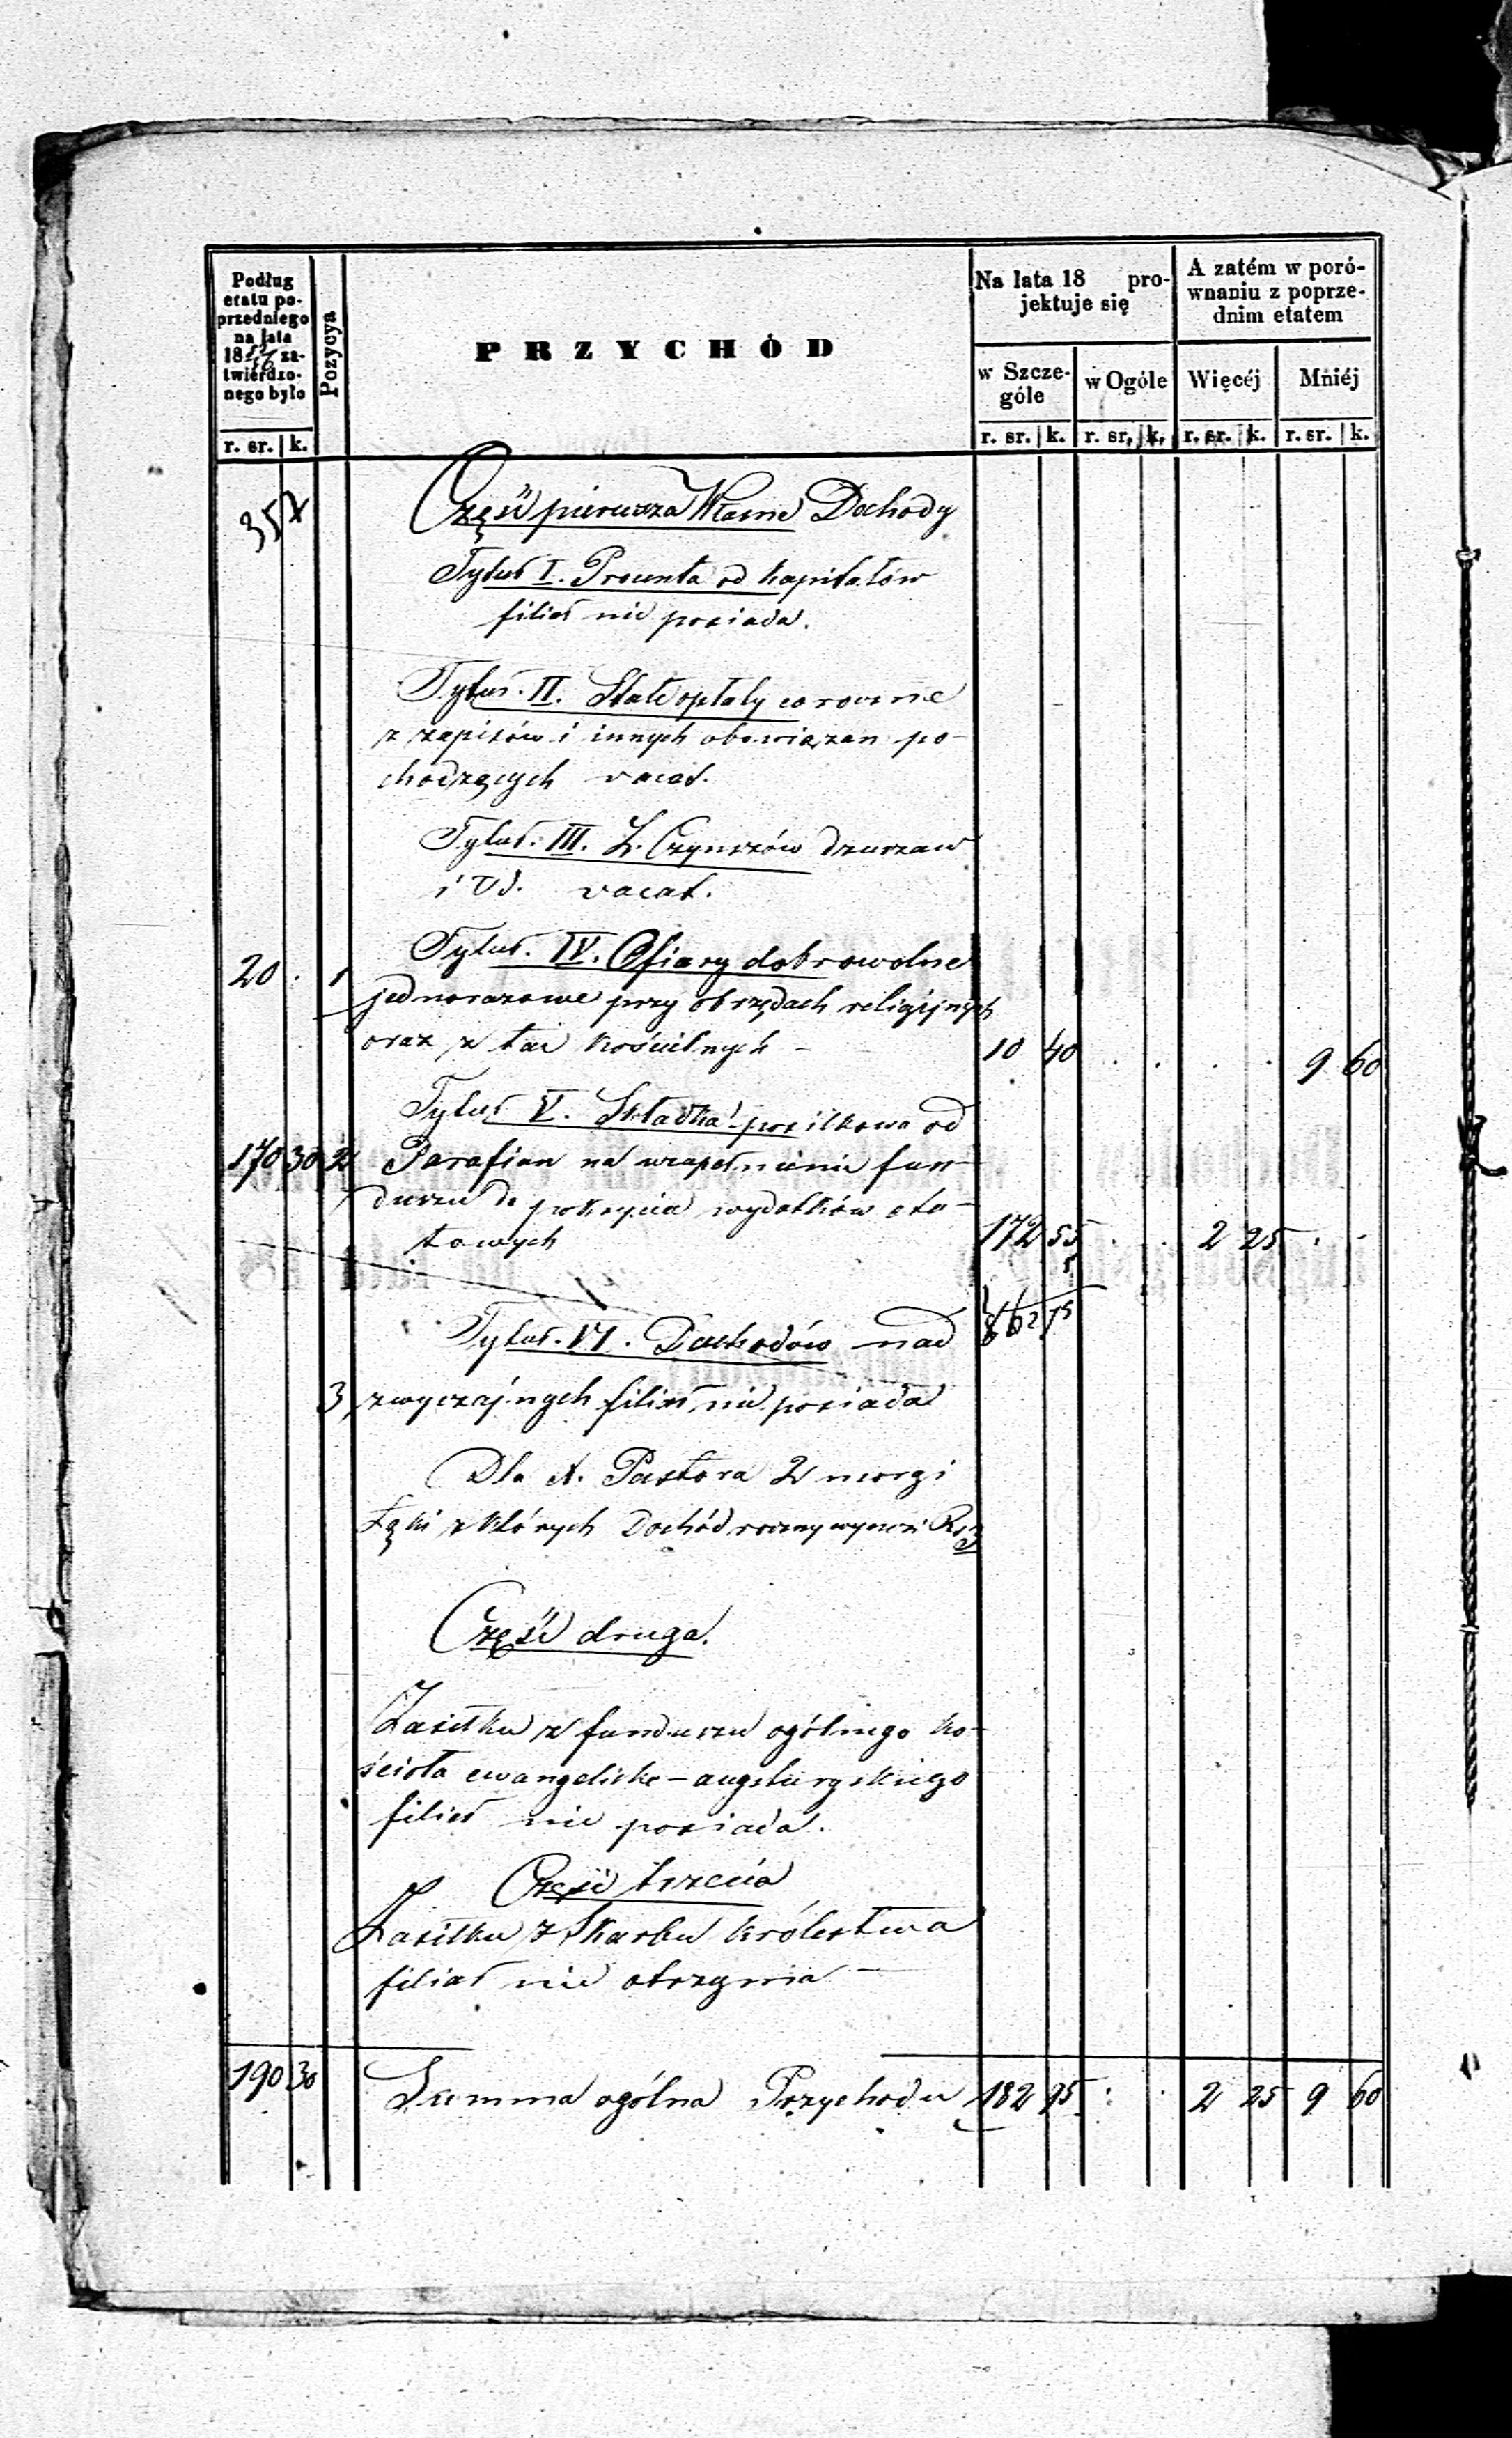 Podług
etatu po-
przedniego
na lata
18 za-
twierdzo-
nego było
r. sr. k.
Pozycya
PRZYCHÓD
Na lata 18 pro-
jektuje się
w Szcze-
góle
w Ogóle
r. sr. k. r. sr. k.
A zatém w poró-
wnaniu z poprze-
dnim etatem
Więcéj Mniéj
r. sr. k. r. sr. k.
357
Część pierwsza Własne Dochody
Tytuł I. Procenta od kapitałów
filiał nie posiada.
Tytuł. II. Stałe opłaty coroczne
z zapisów i innych obowiązan po-
chodzących vacat.
Tytuł. III. Z. Czynszów dzierzaw
i t d. vacat.
Tytuł. IV. Ofiary dobrowolne
20 . 1 jednorazowe przy obrzędach religijnych
oraz z tac kościelnych - 10 40 . . . . 9 60
Tytuł V. Składka posiłkowa od
170 30 2 Parafian na uzupełnienie fun-
duszu do pokrycia wydatków eta-
towych 172 55 . . 2 25 . .
Tytuł. VI. Dochodów nad
3 zwyczajnych filiał nie posiada
Dla X. Pastora 2 morgi
Łąki z których Dochód roczny wynosi
Część druga.
Zasiłku z funduszu ogólnego ko-
ścioła ewangelicko-augsburgskiego
filiał nie posiada.
Część trzecia
Zasiłku z Skarbu Królestwa
filiał nie otrzymia -
190 30 Summa ogólna Przychodu 182 95 . . 2 25 9 60